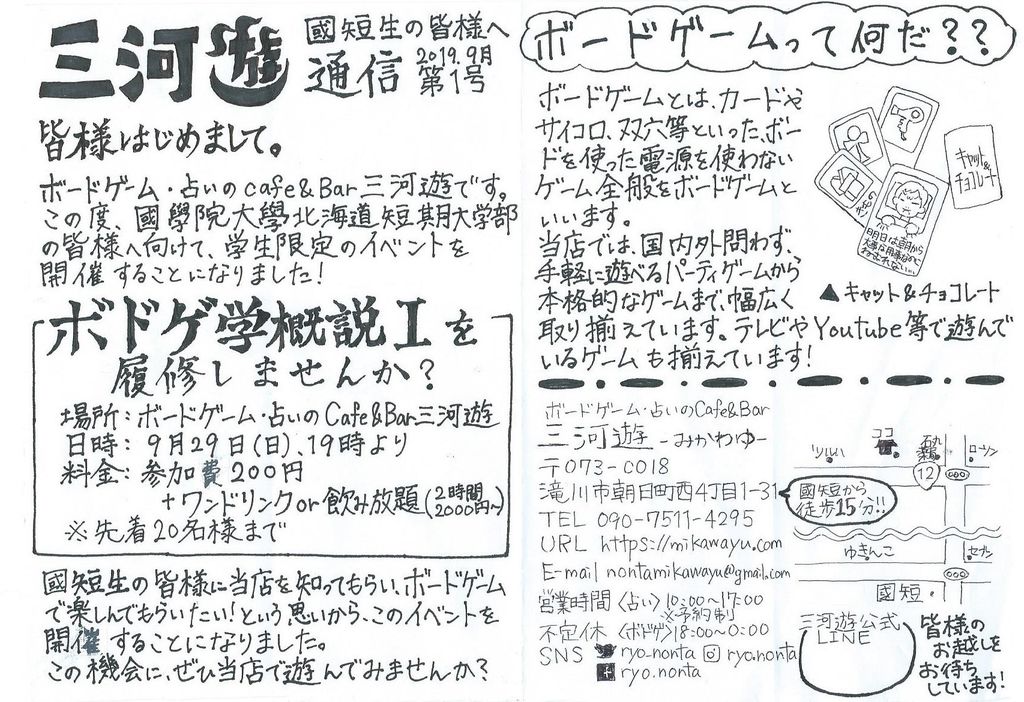 國短生の皆様へ
三河遊 通信 2019.9月 第1号
皆様はじめまして。
ボードゲーム・占いのcafe&Bar三河遊です。
この度、國學院大學北海道短期大学部
の皆様へ向けて、学生限定のイベントを
開催することになりました!
ボドゲ学概説Ⅰを
履修しませんか?
場所:ボードゲーム・占いのCafe&Bar三河遊
日時: 9月29日(日)、19時より
料金: 参加費200円
+ワンドリンクor飲み放題(2時間2000円〜)
※先着20名様まで
國短生の皆様に当店を知ってもらい、ボードゲーム
で楽しんでもらいたい!という思いから、このイベントを
開催することになりました。
この機会に、ぜひ当店で遊んでみませんか?
ボードゲームって何だ??
ボードゲームとは、カードや
サイコロ、双六等といった、ボー
ドを使った電源を使わない
ゲーム全般をボードゲームと
いいます。
当店では、国内外問わず、
手軽に遊べるパーティゲームから
本格的なゲームまで、幅広く
取り揃えています。テレビやYoutube等で遊んで
いるゲームも揃えています!
キャット&チョコレート
明日は朝から
大事な用事なのに
ねむれない…
▲キャット&チョコレート
ボードゲーム・占いのCafe&Bar
三河遊 -みかわゆ-
〒073-0018
滝川市朝日町西4丁目1-31
TEL 090-7511-4295
URL https://mikawayu.com
E-mail nontamikawayu@gmail.com
営業時間〈占い〉10:00~17:00
※予約制
不定休〈ボドゲ〉18:00~0:00
SNS ryo_nonta ryo.nonta
ryo.nonta
ココ
ローソン
12
國短から
徒歩15分!!
ゆきんこ
セブン
國短
三河遊公式
LINE
皆様の
お越しを
お待ち
しています!